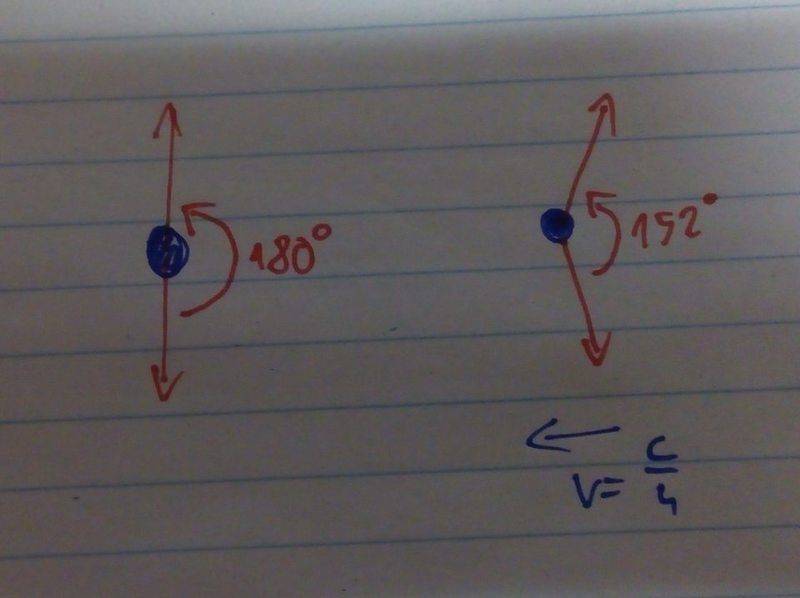 180°
152°
V= c/4